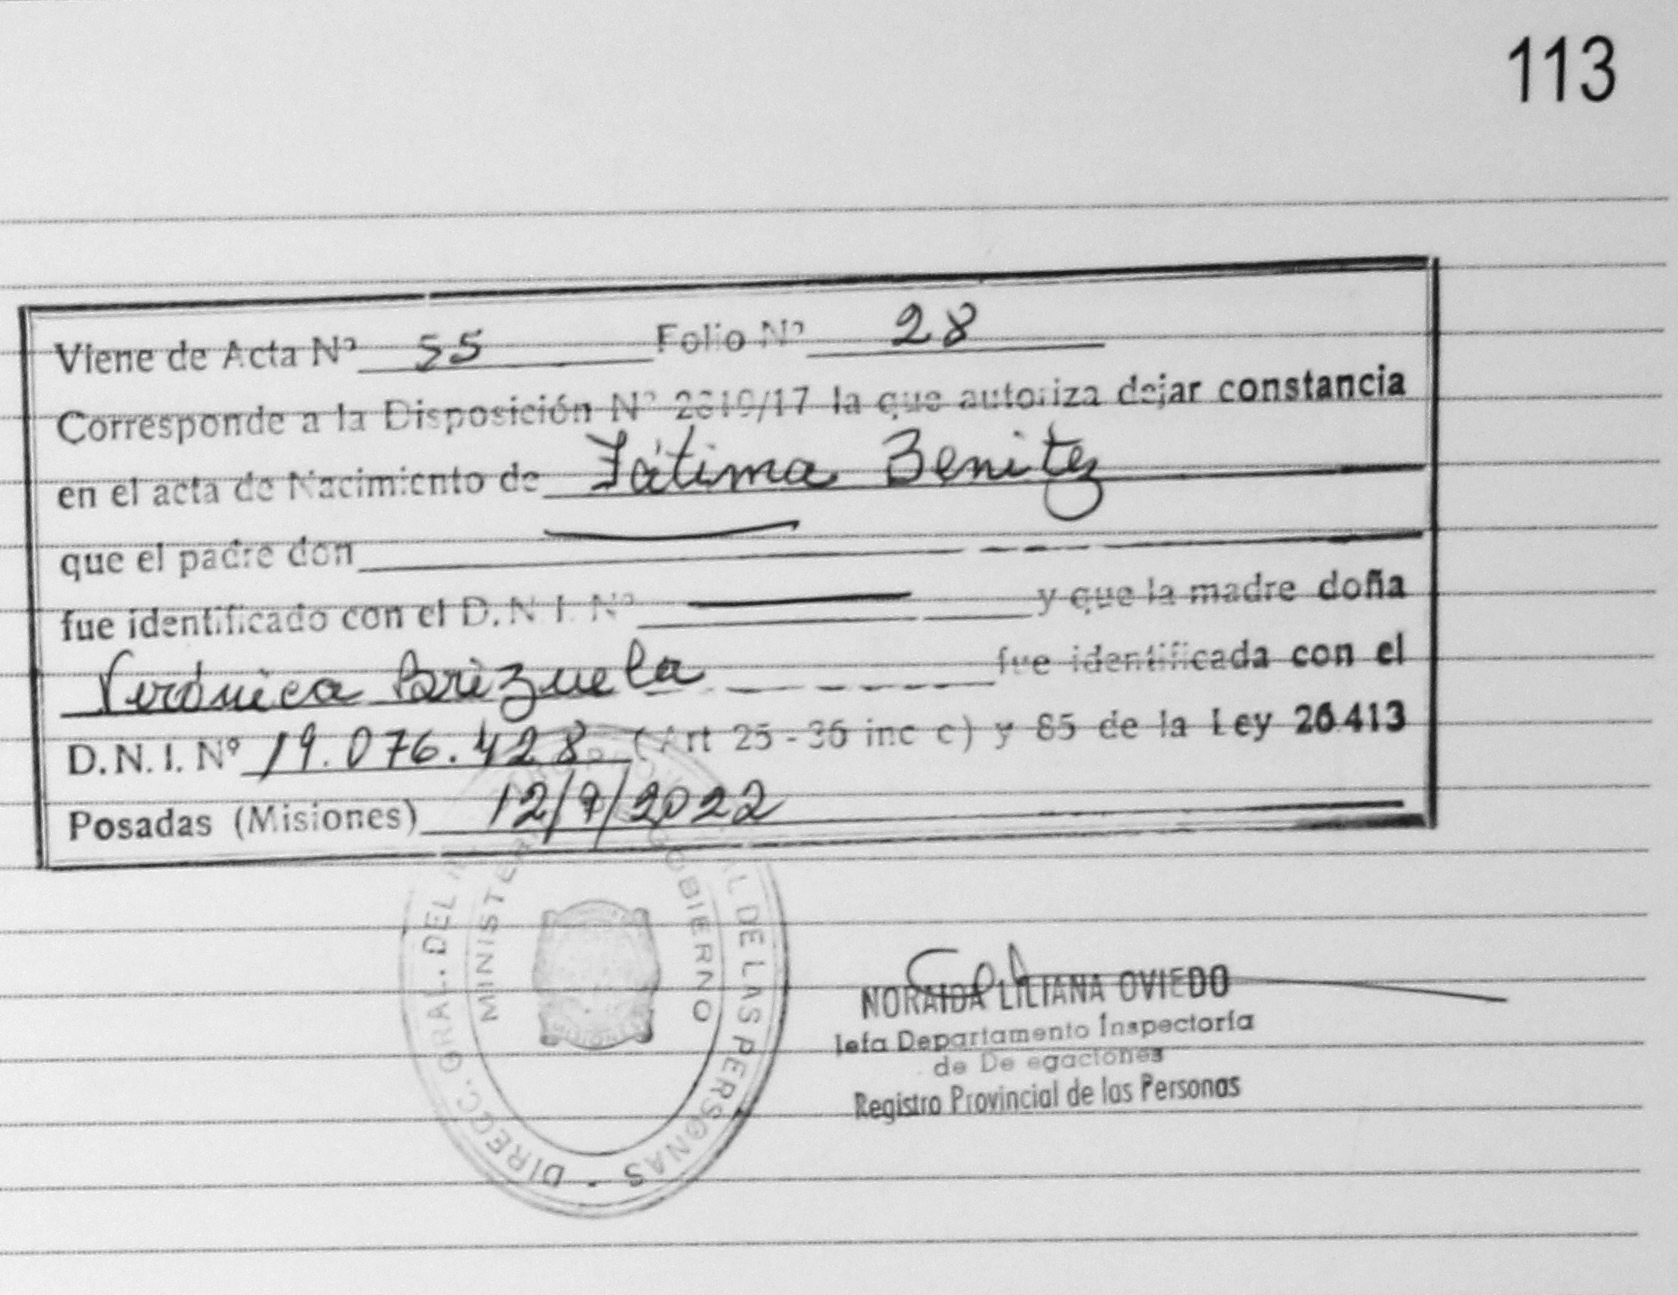 113
Viene de Acta Nº 55 Folio Nº 28
Corresponde a la Disposición Nº 2819/17 la que autoriza dejar constancia
en el acta de Nacimiento de Fátima Benitez
que el padre don
fue identificado con el D.N.I. Nº y que la madre doña
Verónica Brizuela fue identificada con el
D.N.I. Nº 19.076.428 (Art 25 - 36 inc c) y 85 de la Ley 26413
Posadas (Misiones) 12/7/2022
DIRECC. GRAL. DEL AL DE LAS PERSONAS -
MINISTERIO GOBIERNO
NORAIDA LILIANA OVIEDO
Jefa Departamento Inspectoría
de De egaciones
Registro Provincial de las Personas